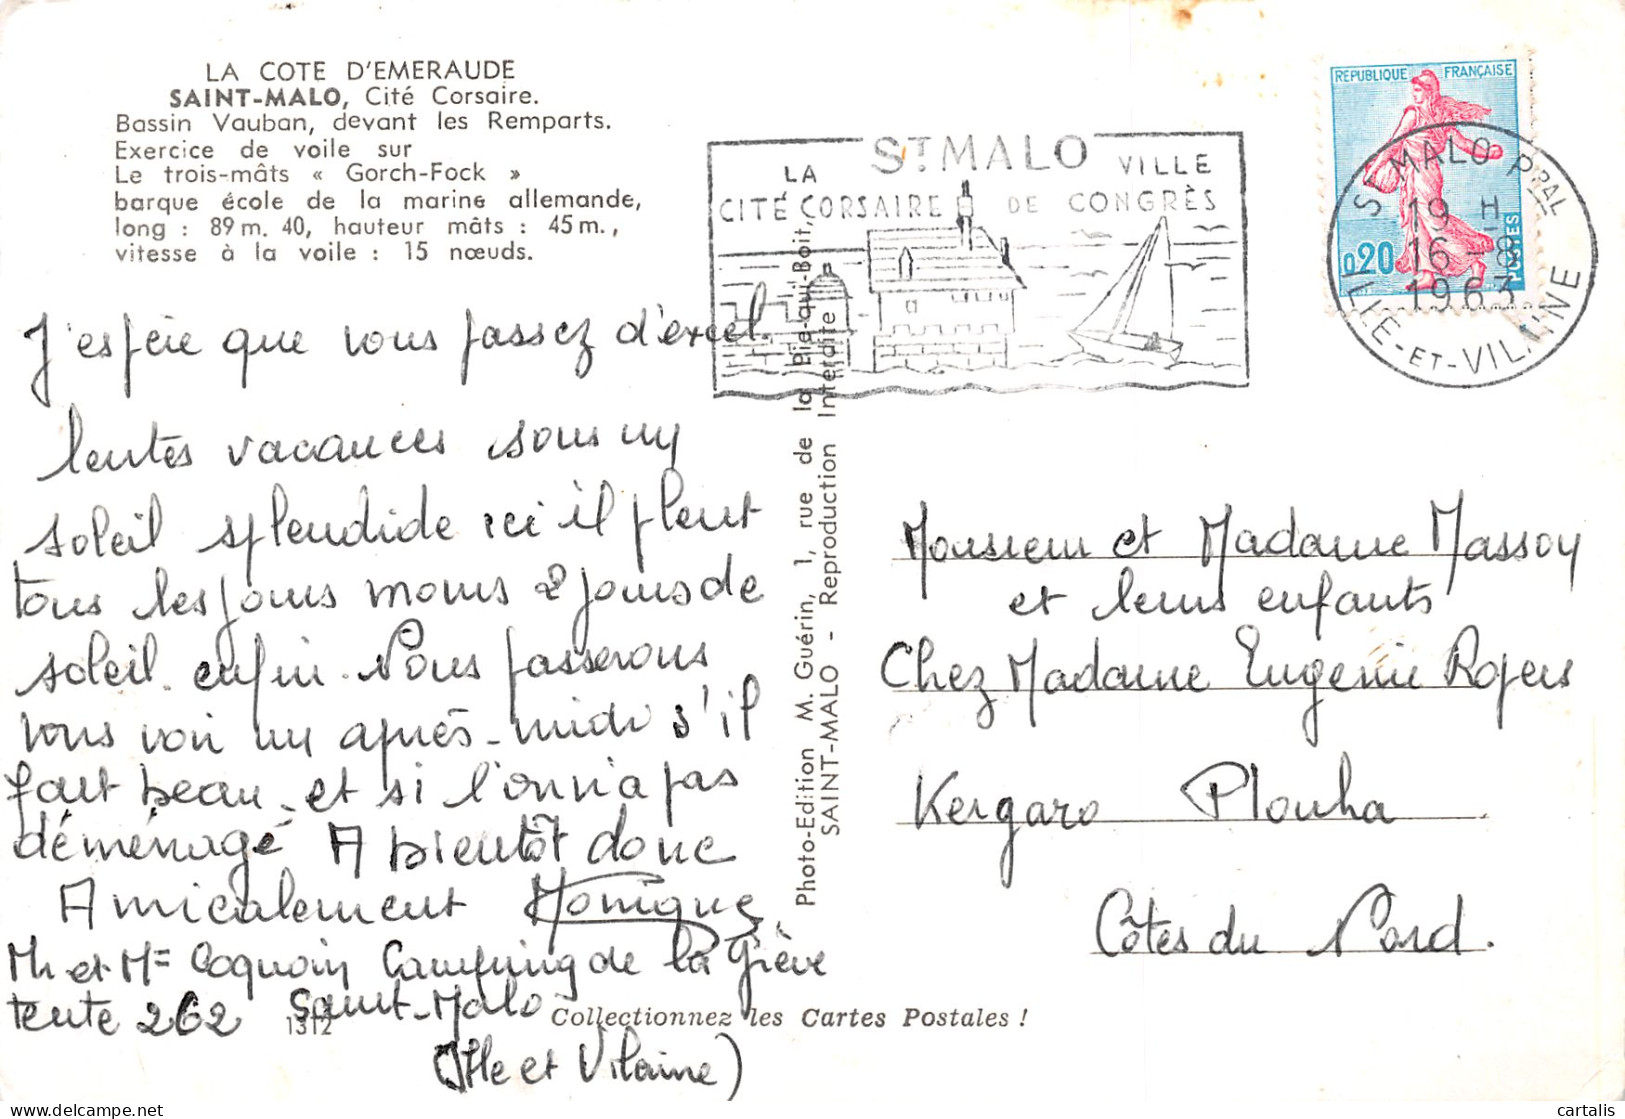 LA COTE D'EMERAUDE
SAINT-MALO, Cité Corsaire.
Bassin Vauban, devant les Remparts.
Exercice de voile sur
Le trois-mâts « Gorch-Fock »
barque école de la marine allemande,
long : 89 m. 40, hauteur mâts : 45 m.,
vitesse à la voile : 15 nœuds.
J'espère que vous passez d'excel.
lentes vacances sous un
soleil splendide ici il pleut
tous les jours moins 2 jours de
soleil enfin. Nous passerons
vous voir un après-midi s'il
fait beau et si l'on n'a pas
déménagé A bientôt donc
Amicalement Monique
Mr et Me Coquoin Camping de la Grève
tente 262 Saint-Malo
(Ille et Vilaine)
1312
Collectionnez les Cartes Postales !
Photo-Edition M. Guérin, 1, rue de la Pie-qui-Boit,
SAINT-MALO - Reproduction Interdite
ST MALO
LA CITÉ CORSAIRE
VILLE DE CONGRÈS
REPUBLIQUE FRANÇAISE
0,20
POSTES
ST MALO PPAL
19 H
16 - 8
1963
ILLE-ET-VILAINE
Monsieur et Madame Massoy
et leurs enfants
Chez Madame Eugenie Rogers
Kergaro Plouha
Côtes du Nord.
delcampe.net
cartalis